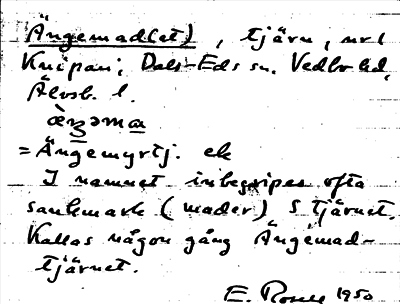 Ängemadlet) , tjärn, nv l
Knipan; Dals-Eds sn. Vedbo hd,
Älvsb. l.
= Ängemyrtj. ek
I namnet inbegripes ofta
sankmark ( mader) S tjärnet.
Kallas någon gång Ängemad-
tjärnet.
E. 1950